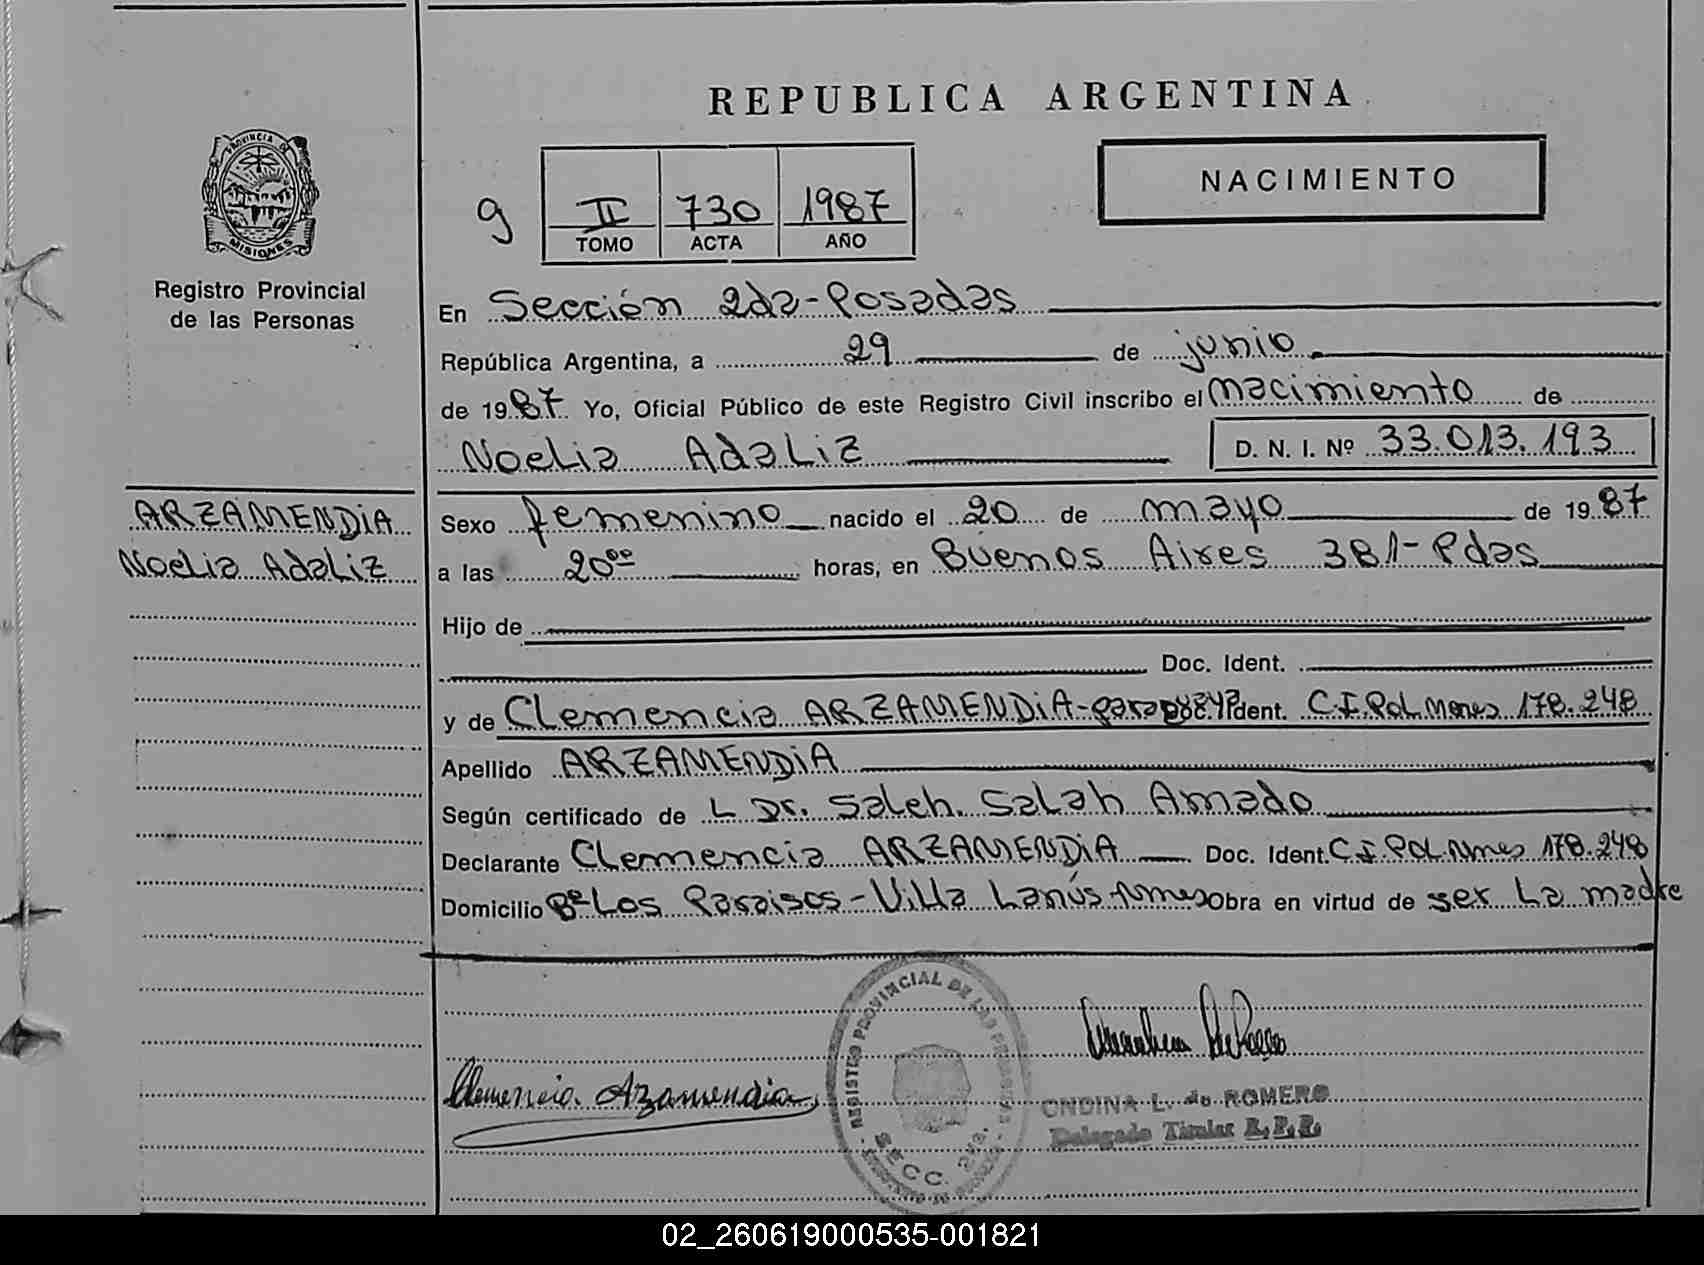 REPUBLICA ARGENTINA
PROVINCIA DE
MISIONES
Registro Provincial
de las Personas
NACIMIENTO
9 II 730 1987
TOMO ACTA AÑO
En Sección 2da-Posadas
República Argentina, a 29 de junio
de 1987 Yo, Oficial Público de este Registro Civil inscribo el nacimiento de
Noelia Adaliz D. N. I. Nº 33.013.193
ARZAMENDiA
Noelia Adaliz
Sexo femenino nacido el 20 de mayo de 1987
a las 20⁰⁰ horas, en Buenos Aires 381-Pdas
Hijo de
Doc. Ident.
y de Clemencia ARZAMENDiA-paraguaya Ident. C.I.Pol Mnes 178.248
Apellido ARZAMENDiA
Según certificado de L Dr. Saleh. Salah Amado
Declarante Clemencia ARZAMENDiA Doc. Ident. C.I.Pol Mnes 178.248
Domicilio Bº Los Paraisos-Villa Lanús-Mnes Obra en virtud de ser La madre
REGISTRO PROVINCIAL DE LAS PERSONAS
SECC. 2da.
Clemencia Arzamendia
ONDINA L. de ROMERO
Delegado Titular R.P.P.
02_260619000535-001821